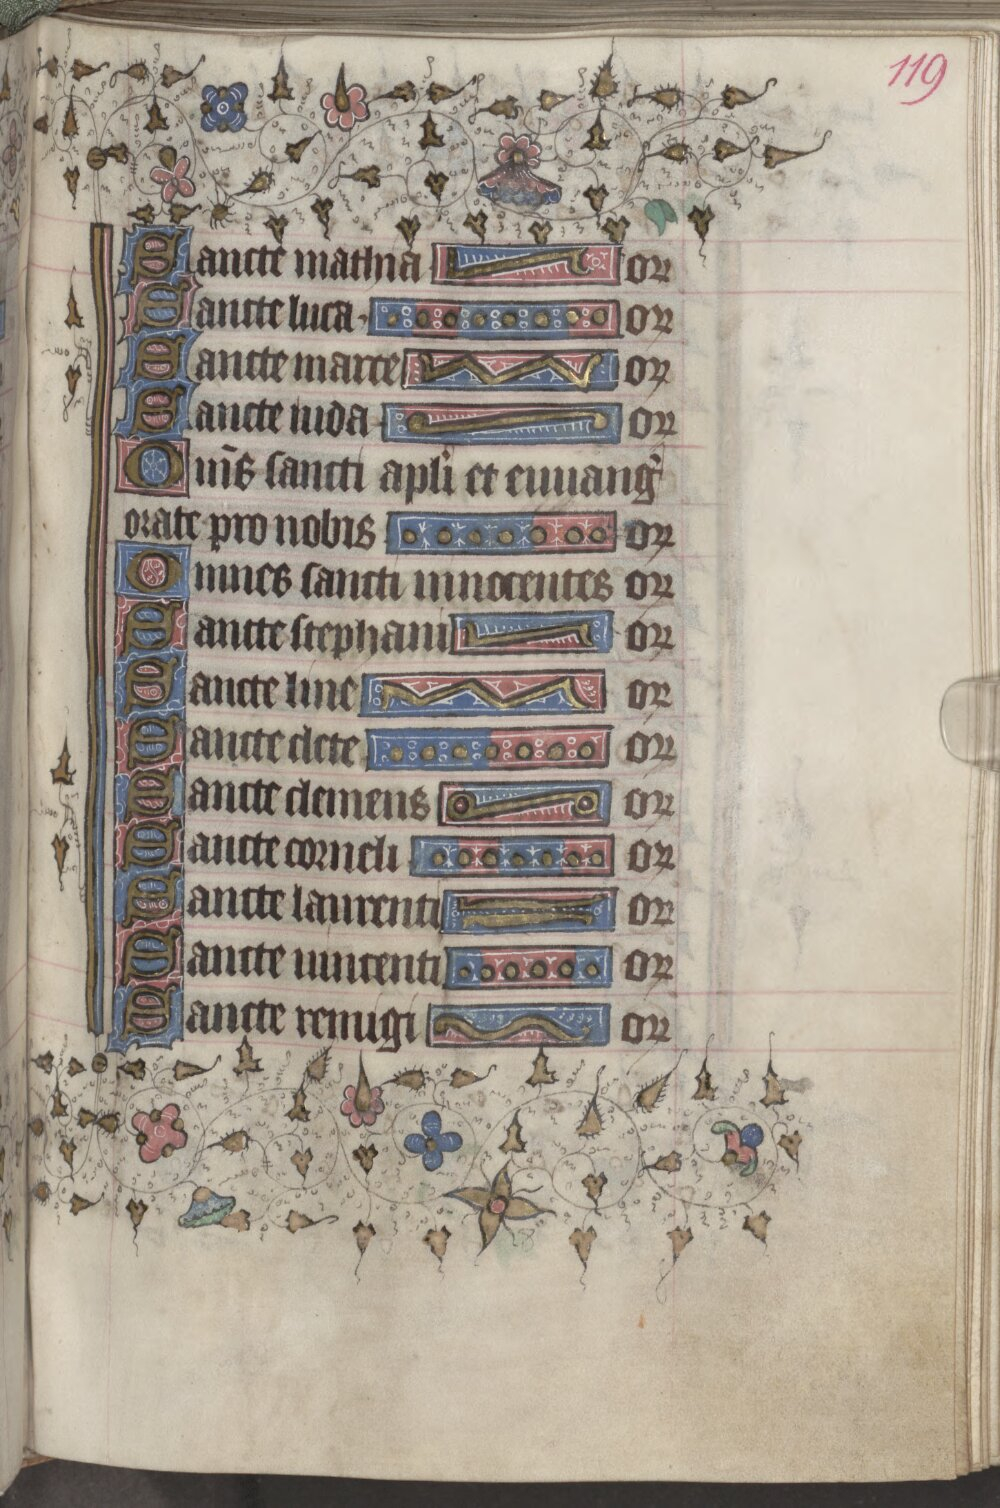 119
Sancte mathia or
Sancte luca or
Sancte marce or
Sancte iuda or
Om̄s sancti apl̄i et euuanḡ
orate pro nobis or
Omnes sancti innocentes or
Sancte stephani or
Sancte line or
Sancte clete or
Sancte clemens or
Sancte corneli or
Sancte laurenti or
Sancte vincenti or
Sancte remigi or